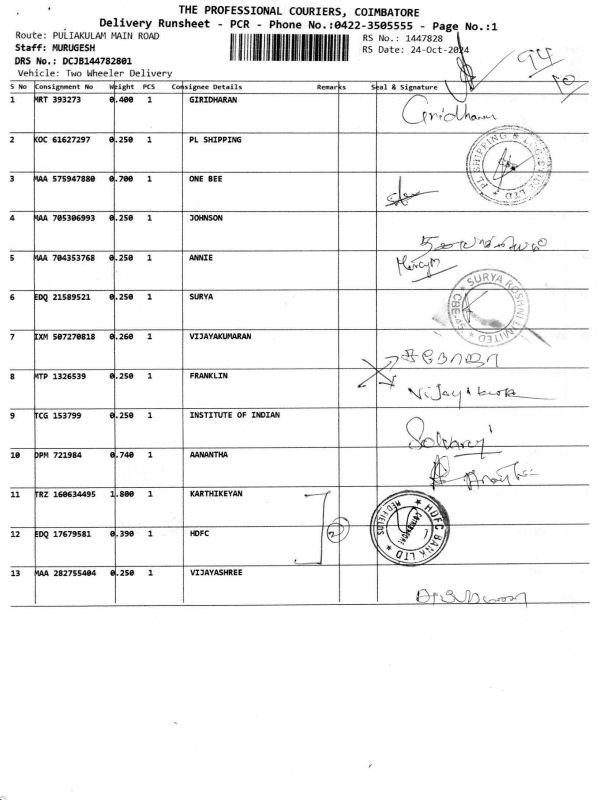 THE PROFESSIONAL COURIERS, COIMBATORE
Delivery Runsheet - PCR - Phone No.:0422-3505555 - Page No.:1
Route: PULIAKULAM MAIN ROAD
RS No.: 1447828
Staff: MURUGESH
RS Date: 24-Oct-2024
DRS No.: DCJB144782801
Vehicle: Two Wheeler Delivery
94
10
S No Consignment No Weight PCS Consignee Details Remarks Seal & Signature
1 MRT 393273 0.400 1 GIRIDHARAN
Giridharan
2 KOC 61627297 0.250 1 PL SHIPPING
PL SHIPPING & LOGISTICS LTD
3 MAA 575947880 0.700 1 ONE BEE
4 MAA 705306993 0.250 1 JOHNSON
5 MAA 704353768 0.250 1 ANNIE
6 EDQ 21589521 0.250 1 SURYA
SURYA ROSHNI LIMITED
7 IXM 507270818 0.260 1 VIJAYAKUMARAN
8 MTP 1326539 0.250 1 FRANKLIN
9 TCG 153799 0.250 1 INSTITUTE OF INDIAN
10 DPM 721984 0.740 1 AANANTHA
11 TRZ 160634495 1.800 1 KARTHIKEYAN
12 EDQ 17679581 0.390 1 HDFC
2
HDFC BANK LTD
COIMBATORE
13 MAA 282755404 0.250 1 VIJAYASHREE